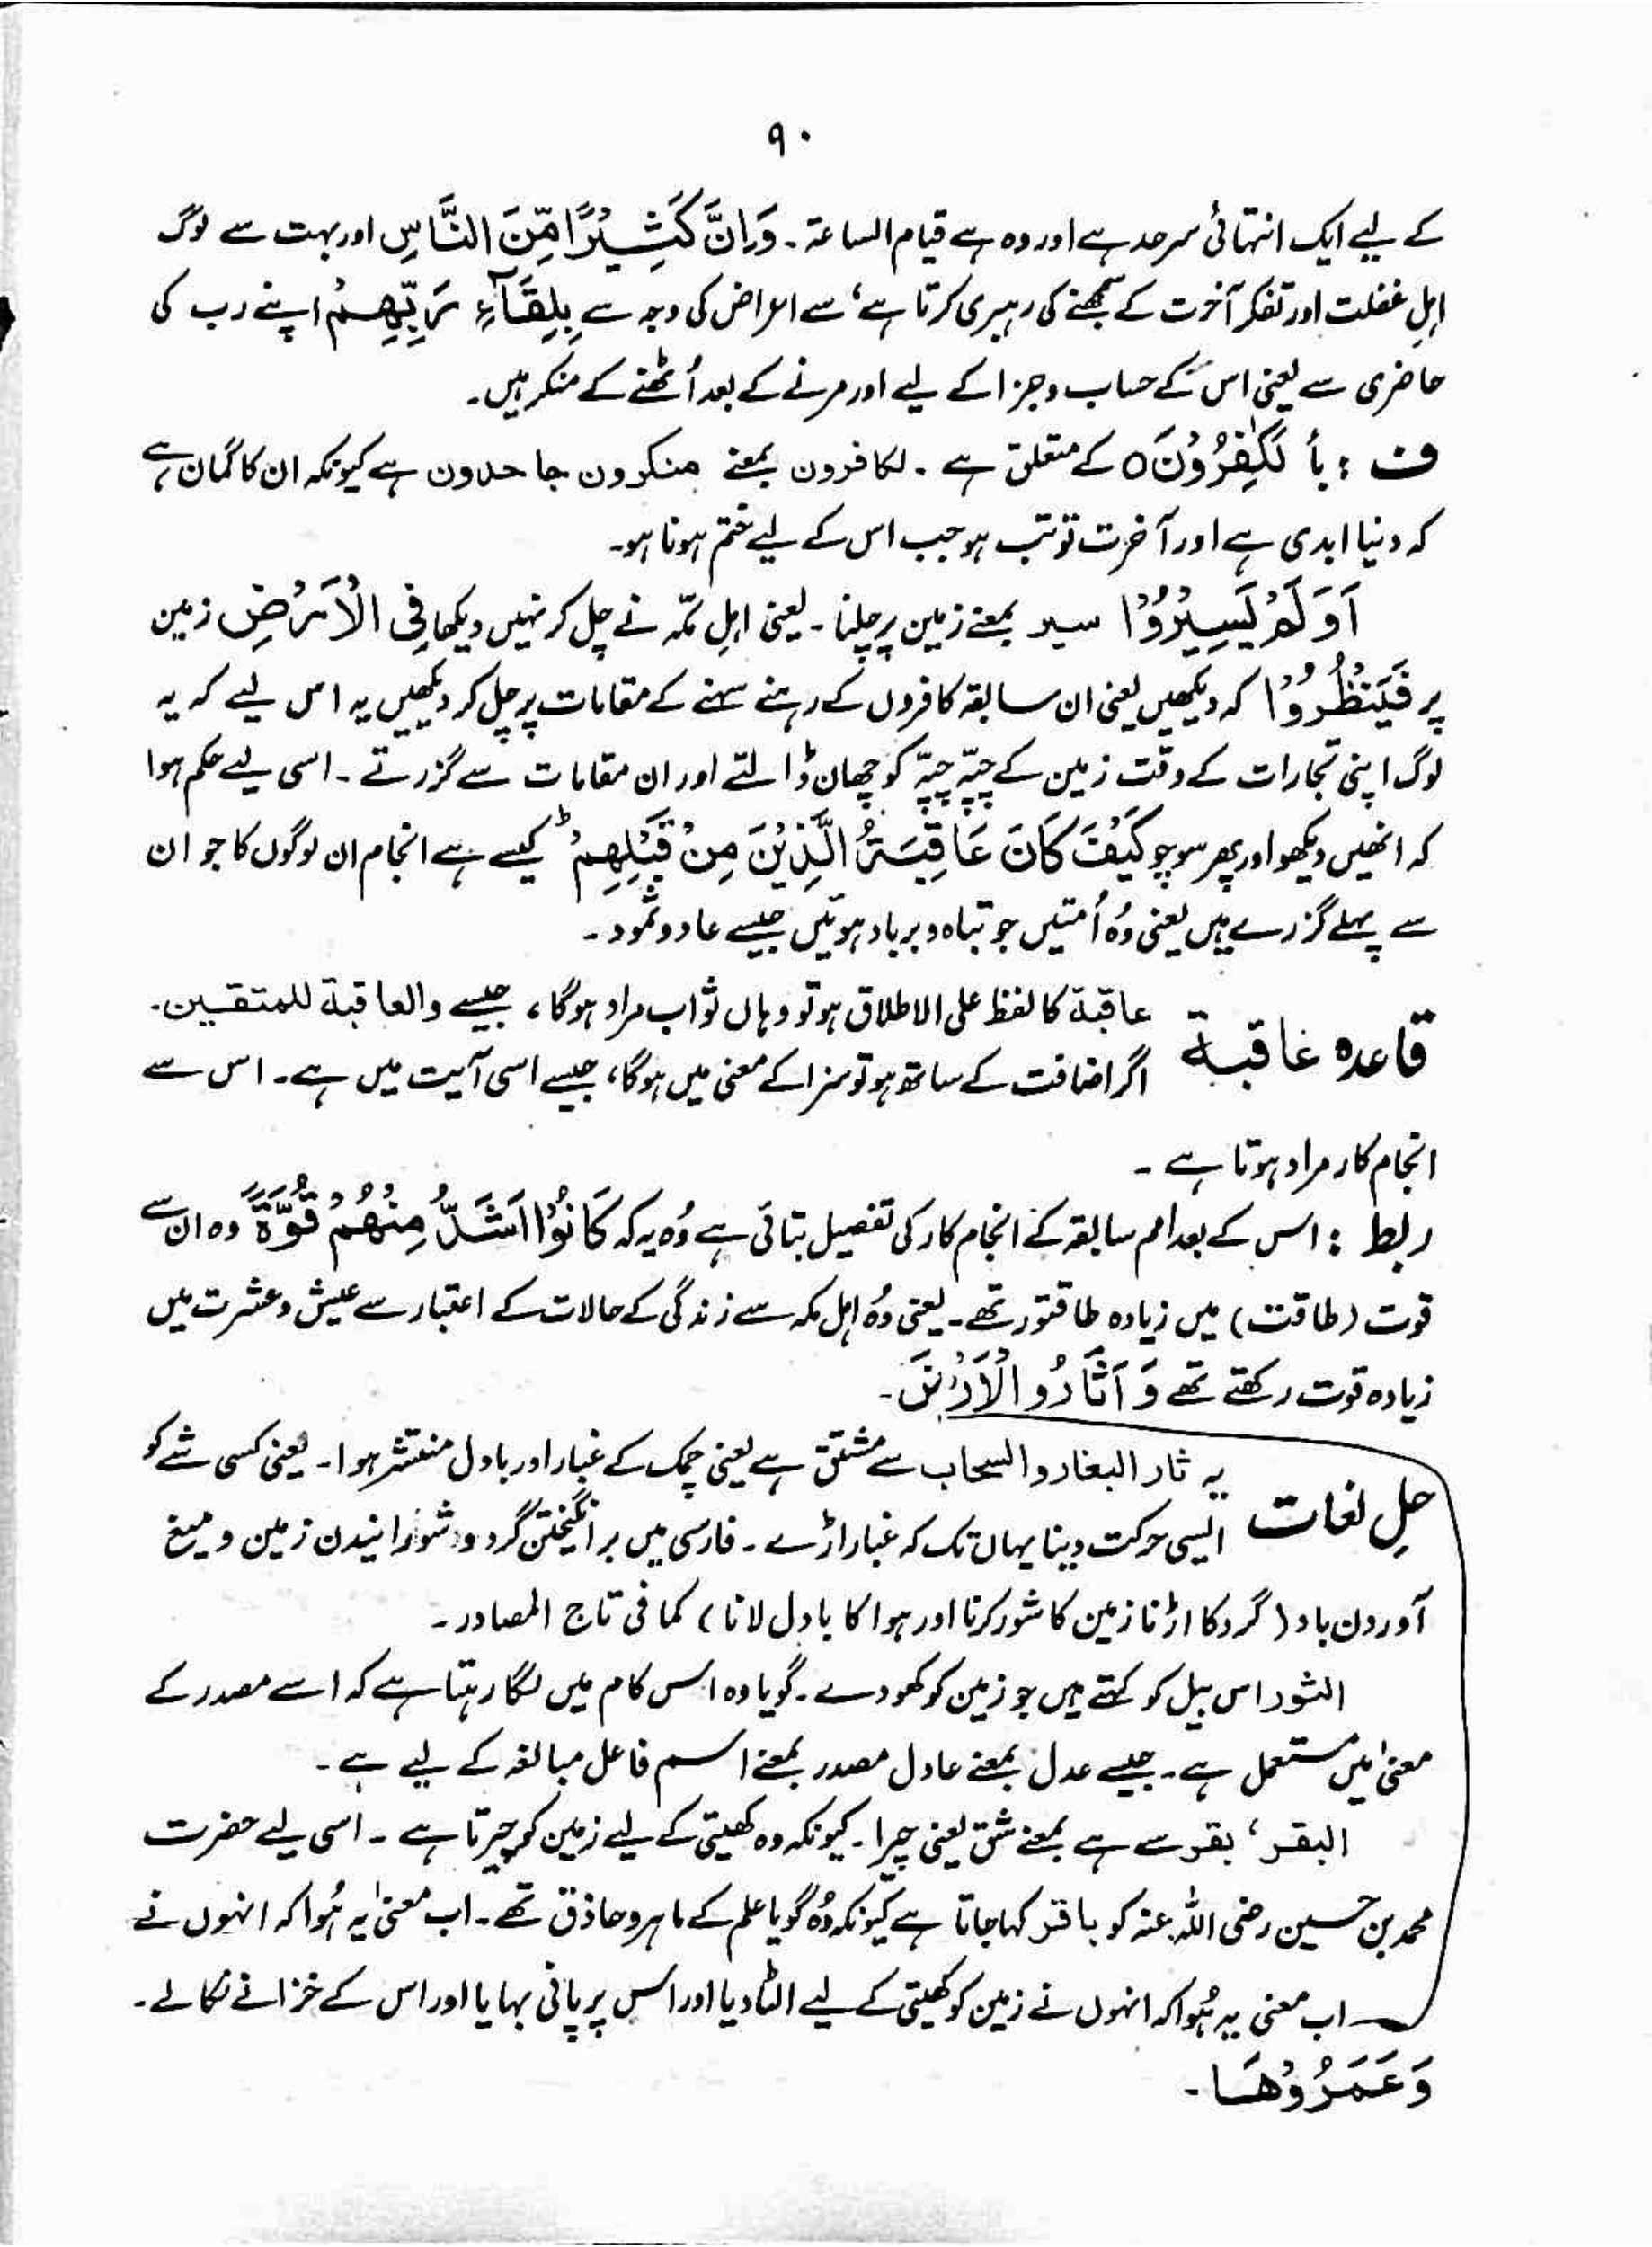 ۹۰
کے لیے ایک انتہائی سرحد ہے اور وہ ہے قیام الساعۃ۔ وَاِنَّ كَثِيْرًا مِّنَ النَّاسِ اور بہت سے لوگ
اہلِ غفلت اور تفکر آخرت کے سمجھنے کی رہبری کرتا ہے، سے اعراض کی وجہ سے بِلِقَآءِ رَبِّهِمْ اپنے رب کی
حاضری سے یعنی اس کے حساب و جزا کے لیے اور مرنے کے بعد اُٹھنے کے منکر ہیں۔
ف : بأ لَكٰفِرُوْنَ○ کے متعلق ہے۔ لکافرون بمعنے منکرون جاحدون ہے کیونکہ ان کا گمان ہے
کہ دنیا ابدی ہے اور آخرت تو تب ہو جب اس کے لیے ختم ہونا ہو۔
اَوَلَمْ يَسِيْرُوْا سیر بمعنے زمین پر چلنا۔ یعنی اہلِ مکّہ نے چل کر نہیں دیکھا فِی الْاَرْضِ زمین
پر فَيَنْظُرُوْا کہ دیکھیں یعنی ان سابقہ کافروں کے رہنے سہنے کے مقامات پر چل کر دیکھیں یہ اس لیے کہ یہ
لوگ اپنی تجارات کے وقت زمین کے چپّہ چپّہ کو چھان ڈالتے اور ان مقامات سے گزرتے۔ اسی لیے حکم ہوا
کہ انھیں دیکھو اور پھر سوچو كَيْفَ كَانَ عَاقِبَةُ الَّذِيْنَ مِنْ قَبْلِهِمْ ؕ کیسے ہے انجام ان لوگوں کا جو ان
سے پہلے گزرے ہیں یعنی وُہ اُمتیں جو تباہ و برباد ہوئیں جیسے عاد و ثمود۔
قاعدہ عاقبۃ عاقبۃ کا لفظ علی الاطلاق ہو تو وہاں ثواب مراد ہوگا، جیسے والعاقبة للمتقین۔
اگر اضافت کے ساتھ ہو تو سزا کے معنی میں ہوگا، جیسے اسی آیت میں ہے۔ اس سے
انجام کار مراد ہوتا ہے۔
ربط : اس کے بعد امم سابقہ کے انجام کار کی تفصیل بتائی ہے وُہ یہ کہ كَانُوْا اَشَدَّ مِنْهُمْ قُوَّةً وہ ان سے
قوت (طاقت) میں زیادہ طاقتور تھے۔ یعنی وُہ اہلِ مکہ سے زندگی کے حالات کے اعتبار سے عیش و عشرت میں
زیادہ قوت رکھتے تھے وَ اَثَارُو الْاَرْضَ۔
حلِ لغات یہ ثار البغار والسحاب سے مشتق ہے یعنی چمک کے غبار اور بادل منتشر ہوا۔ یعنی کسی شے کو
ایسی حرکت دینا یہاں تک کہ غبار اڑے۔ فارسی میں برانگیختن گرد و شورانیدن زمین و میغ
آوردن باد (گرد کا اڑنا زمین کا شور کرنا اور ہوا کا بادل لانا) کما فی تاج المصادر۔
الثور اس بیل کو کہتے ہیں جو زمین کو کھودے۔ گویا وہ اس کام میں لگا رہتا ہے کہ اسے مصدر کے
معنٰی میں مستعمل ہے۔ جیسے عدل بمعنے عادل مصدر بمعنے اسم فاعل مبالغہ کے لیے ہے۔
البقر، بقر سے ہے بمعنے شق یعنی چیرا۔ کیونکہ وہ کھیتی کے لیے زمین کو چیرتا ہے۔ اسی لیے حضرت
محمد بن حسین رضی اللہ عنہ کو باقر کہا جاتا ہے کیونکہ وُہ گویا علم کے ماہر و حاذق تھے۔ اب معنٰی یہ ہُوا کہ انہوں نے
اب معنی یہ ہُوا کہ انہوں نے زمین کو کھیتی کے لیے الٹا دیا اور اس پر پانی بہایا اور اس کے خزانے نکالے۔
وَعَمَرُوْهَا۔